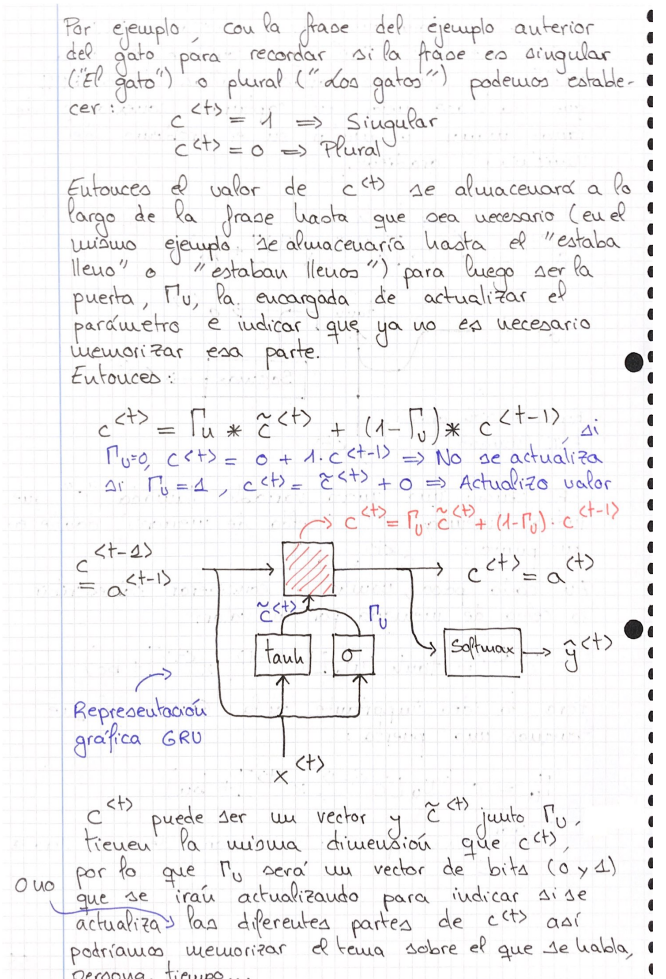 Por ejemplo, con la frase del ejemplo anterior
del gato para recordar si la frase es singular
("El gato") o plural ("Los gatos") podemos estable-
cer:
c<t> = 1 => Singular
c<t> = 0 => Plural
Entonces el valor de c<t> se almacenará a lo
largo de la frase hasta que sea necesario (en el
mismo ejemplo se almacenaría hasta el "estaba
lleno" o "estaban llenos") para luego ser la
puerta, Γu, la encargada de actualizar el
parámetro e indicar que ya no es necesario
memorizar esa parte.
Entonces:
c<t> = Γu * c̃<t> + (1-Γu) * c<t-1>, si
Γu=0, c<t> = 0 + 1·c<t-1> => No se actualiza
si Γu=1, c<t> = c̃<t> + 0 => Actualizo valor
c<t> = Γu · c̃<t> + (1-Γu) · c<t-1>
c<t-1>
= a<t-1>
c<t> = a<t>
c̃<t>
Γu
tanh
σ
Softmax
ŷ<t>
Representación
gráfica GRU
x<t>
c<t> puede ser un vector y c̃<t> junto Γu,
tienen la misma dimensión que c<t>,
por lo que Γu será un vector de bits (0 y 1)
que se irán actualizando para indicar si se
O no
actualiza las diferentes partes de c<t> así
podríamos memorizar el tema sobre el que se habla,
persona, tiempo...